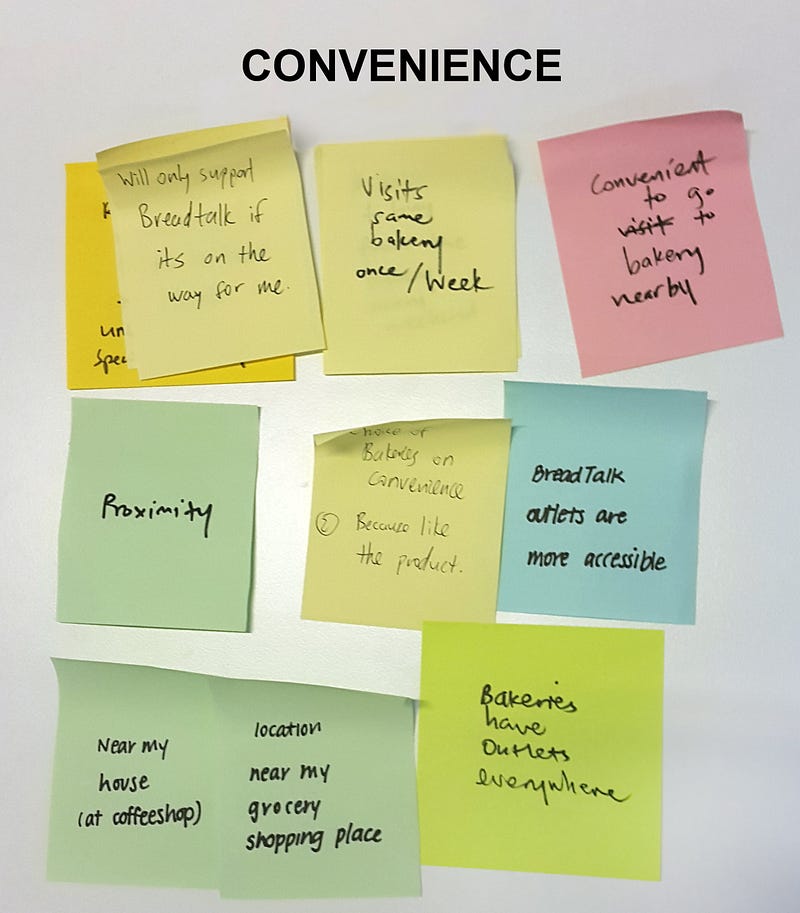 CONVENIENCE
Will only support
Breadtalk if
its on the
way for me.
Visits
same
bakery
once/Week
Convenient
to go
visit to
bakery
nearby
Proximity
Choice of
Bakeries on
Convenience
② Because like
the product.
BreadTalk
outlets are
more accessible
Near my
house
(at coffeeshop)
location
near my
grocery
shopping place
Bakeries
have
Outlets
everywhere